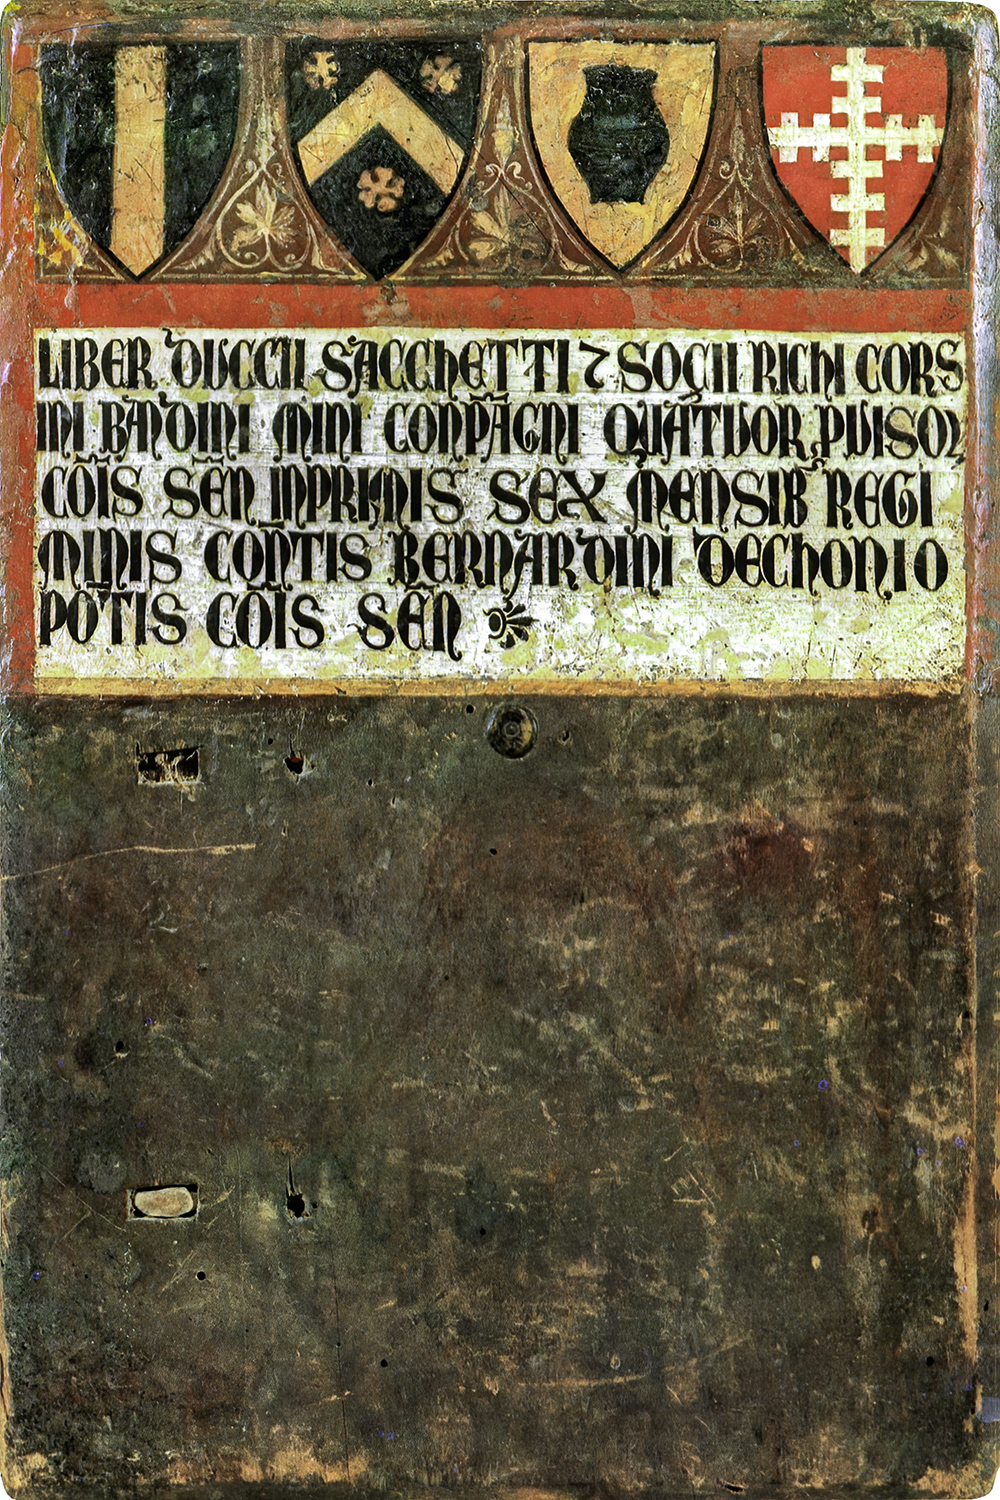 LIBER DUCCII SACCHETTI ⁊ SOCII RICHI CORS
INI BANDINI MINI CONPĀGNI QUATUOR PUISOꝜ
COĪS SEN̄ INPRIMIS SEX MENSIB REGI
MINIS COMTIS BERNARDINI DECHONIO
POT̄IS COĪS SEN̄